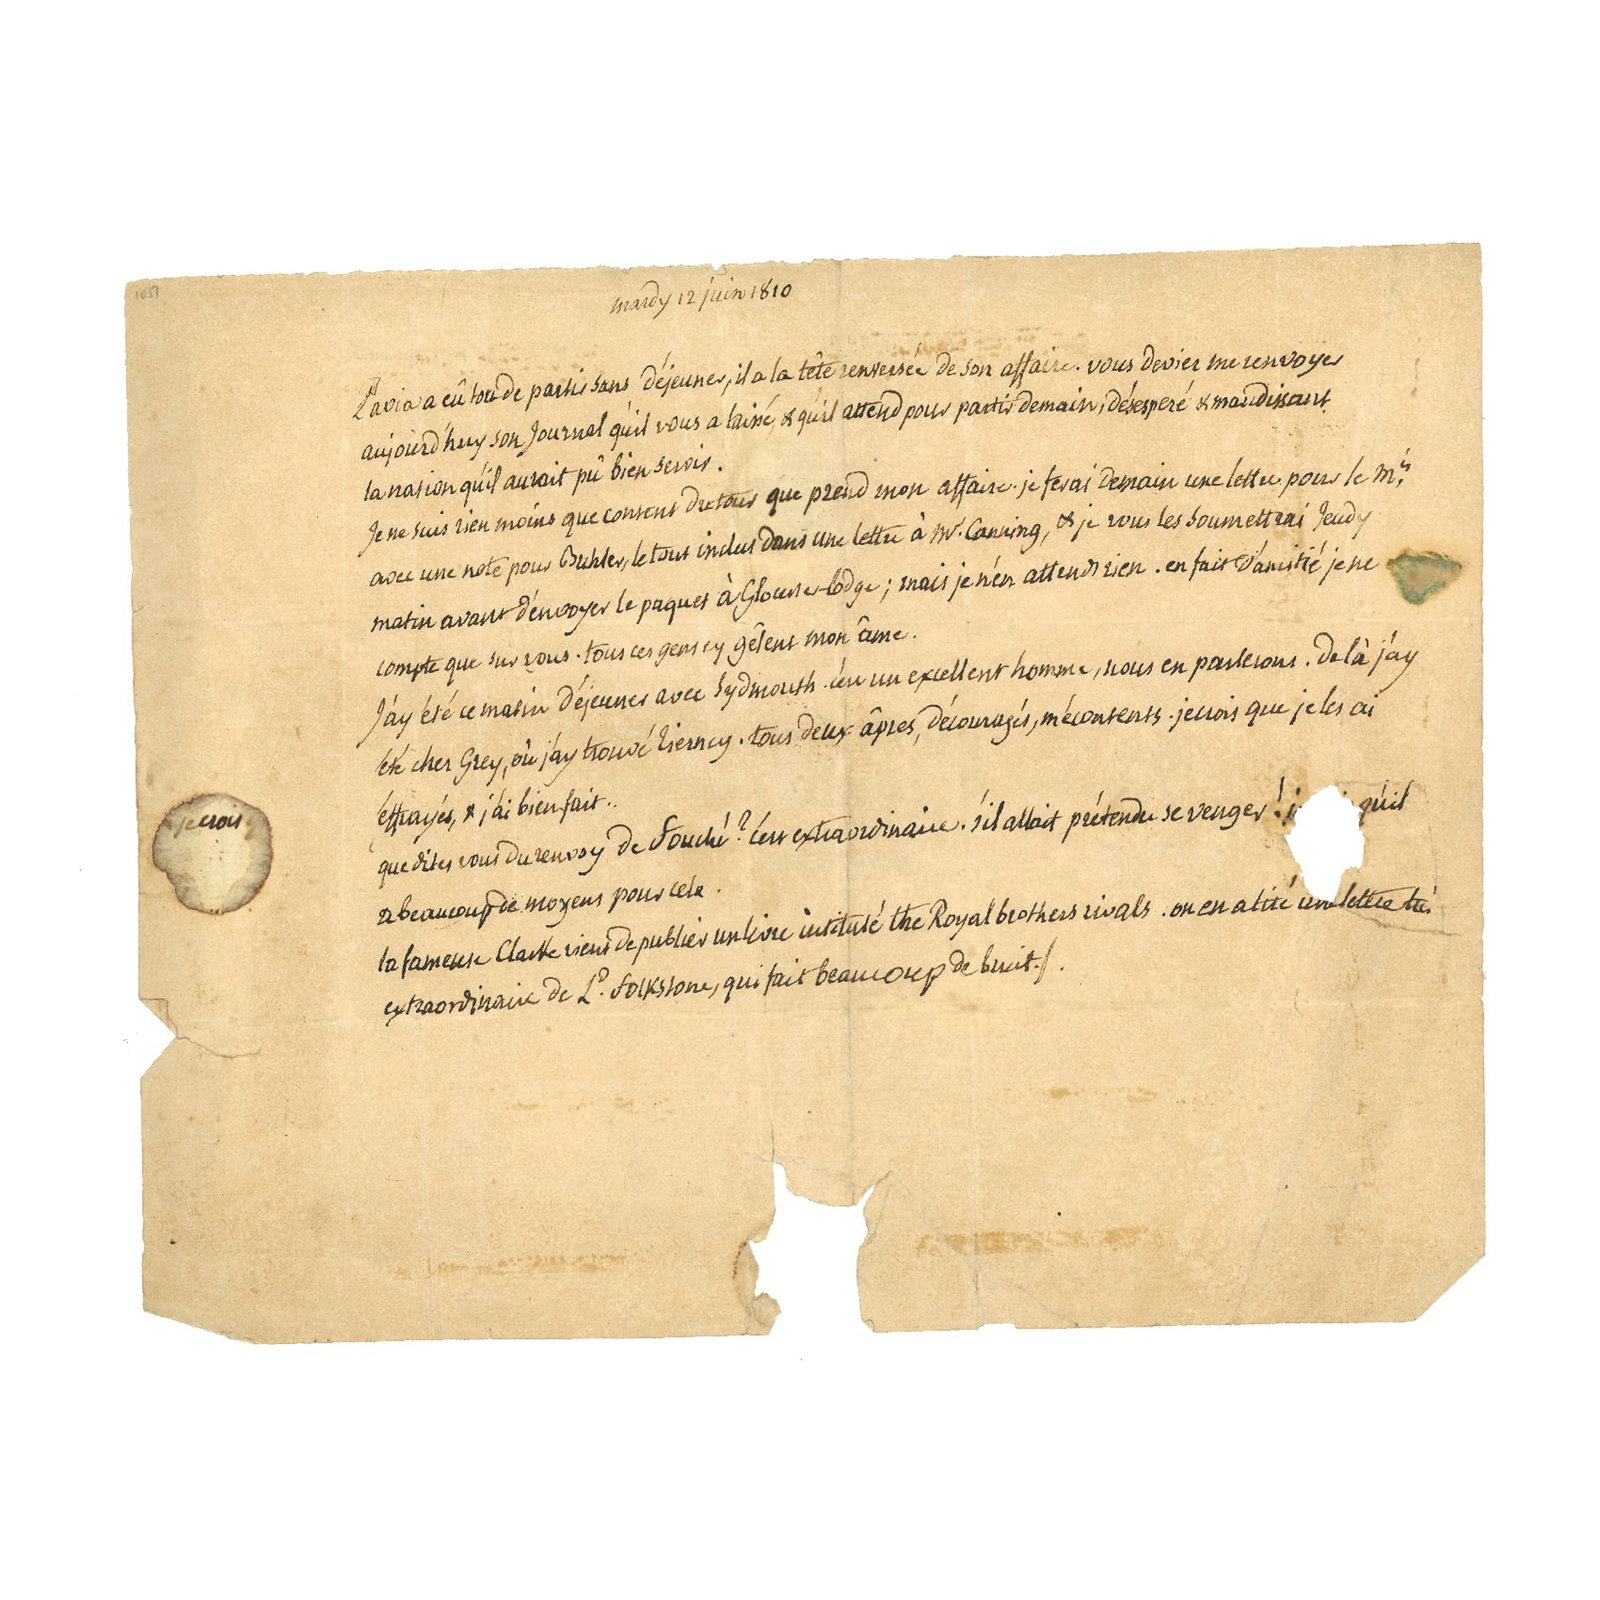 1051
mardy 12 juin 1810
Pavia a eû tort de partir sans déjeuner, il a la tête renversée de son affaire. vous deviez me renvoyer
aujourd'huy son Journal qu'il vous a laissé, & qu'il attend pour partir demain, désesperé & maudissant
la nation qu'il aurait pû bien servir.
Je ne suis rien moins que content du tour que prend mon affaire. je ferai demain une lettre pour le Mis.
avec une note pour Buhler, le tout inclus dans une lettre à Mr. Canning, & je vous les soumettrai Jeudy
matin avant d'envoyer le paquet à Glocester lodge; mais je n'en attends rien. en fait d'amitié je ne
compte que sur vous. tous ces gens cy gêlent mon âme.
J'ay été ce matin déjeuner avec Sydmouth. c'est un excellent homme, nous en parlerons. de là j'ay
été chez Grey, où j'ay trouvé Tierney. tous deux âpres, découragés, mécontents. je crois que je les ai
éffrayés, & j'ai bien fait..
que dites vous du renvoy de Fouché? c'est extraordinaire. s'il allait prétendre se venger! qu'il
a beaucoup de moyens pour cela.
je crois
la fameuse Clarke vient de publier un livre intitulé the Royal brothers rivals. on en a tiré une lettre très
extraordinaire de Ld. folkstone, qui fait beaucoup de bruit.